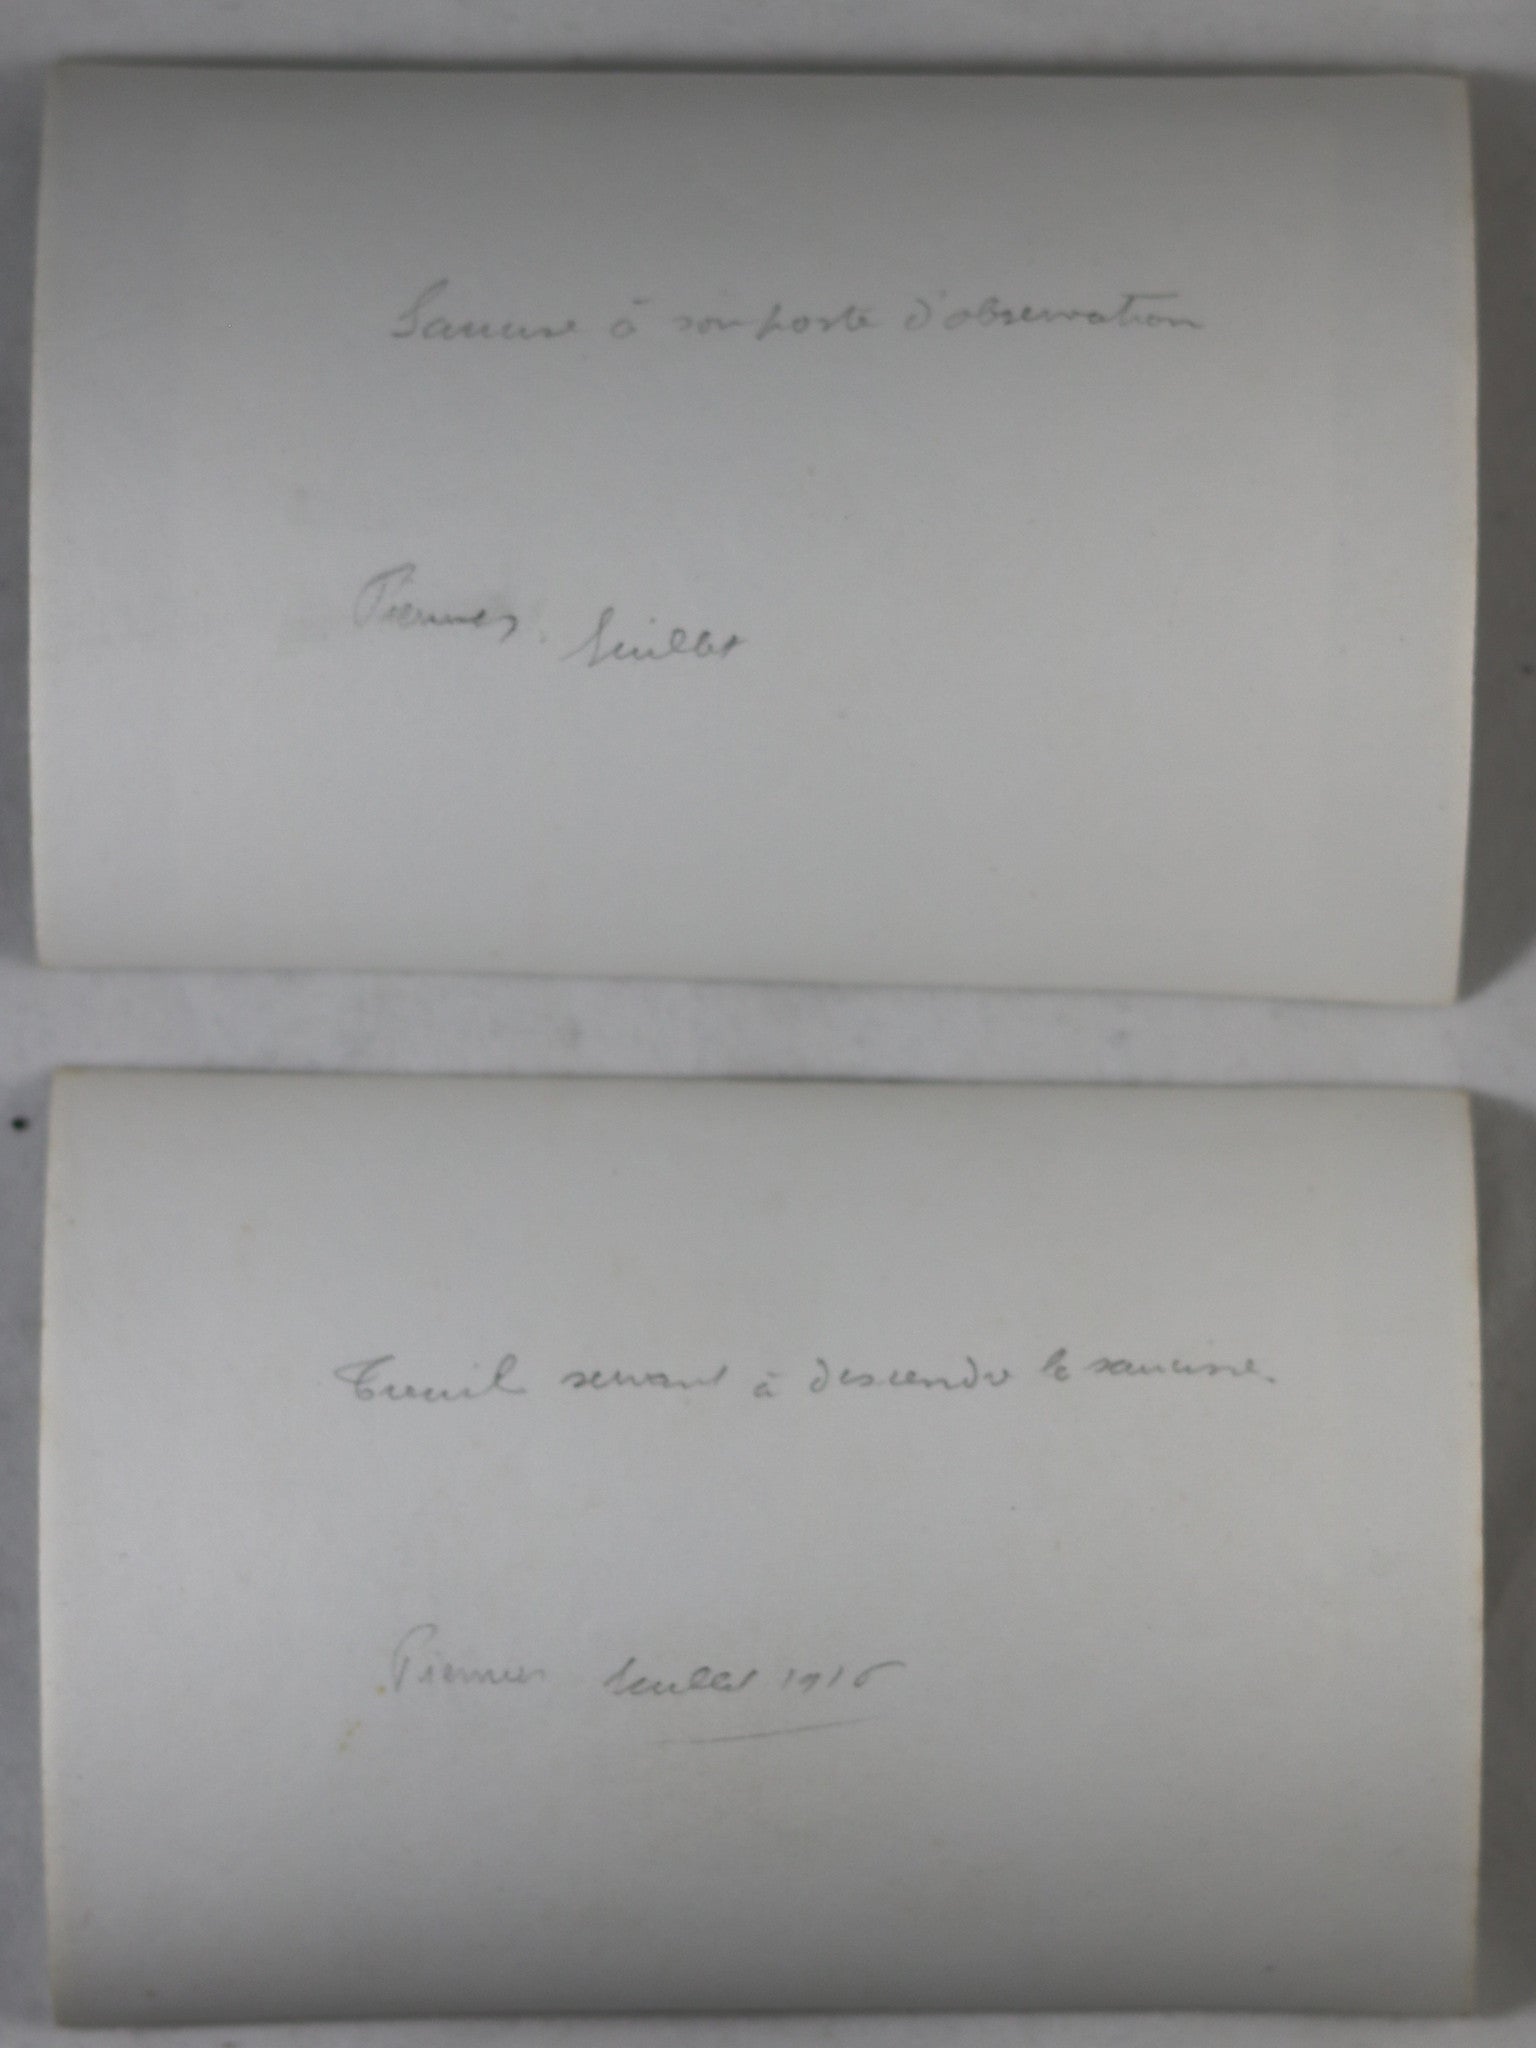 Saucisse à son poste d'observation
Piennes. Juillet
Treuil servant à descendre la saucisse.
Piennes Juillet 1916